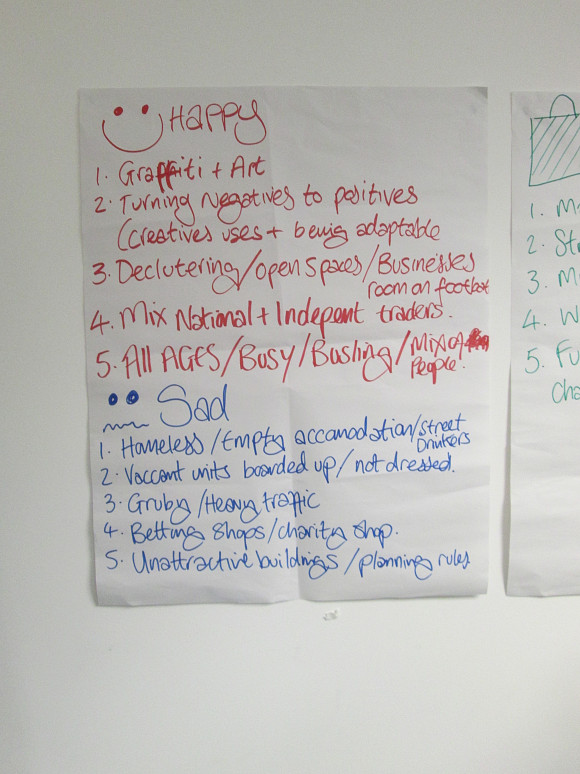 Happy
1. Graffiti + Art
2. Turning Negatives to positives
(Creatives uses + being adaptable
3. Declutering/open spaces/Businesses
room on footbat
4. Mix National + Indepent traders.
5. All AGES/Busy/Busling/Mix of
People.
Sad
1. Homeless/Empty accomodation/street
Drinkers
2. Vaccant units boarded up/not dressed.
3. Gruby/Heavy traffic
4. Betting shops/charity shop.
5. Unattractive buildings/planning rules
1. M
2. St
3. M
4. W
5. Fu
Cha